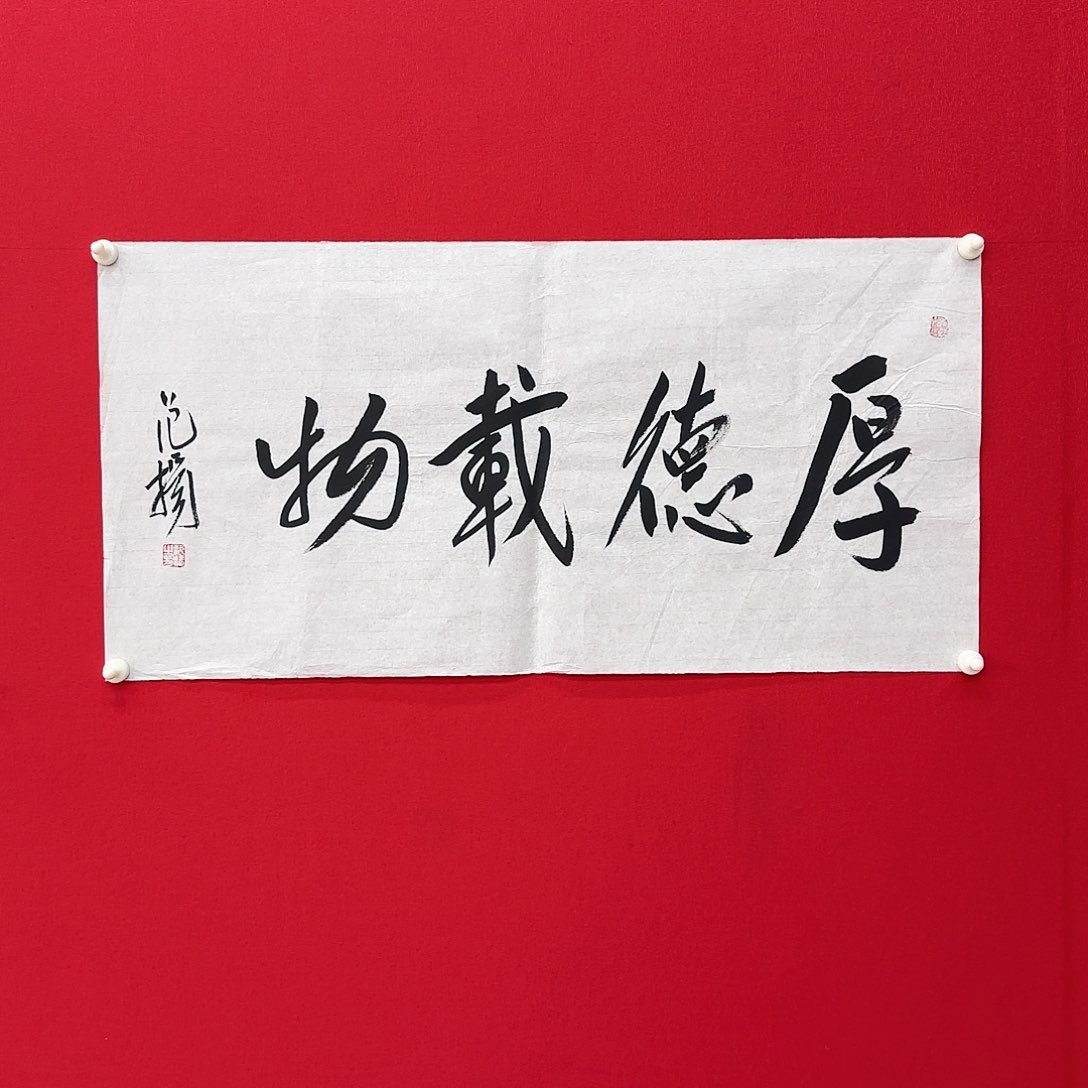 厚德載物
范